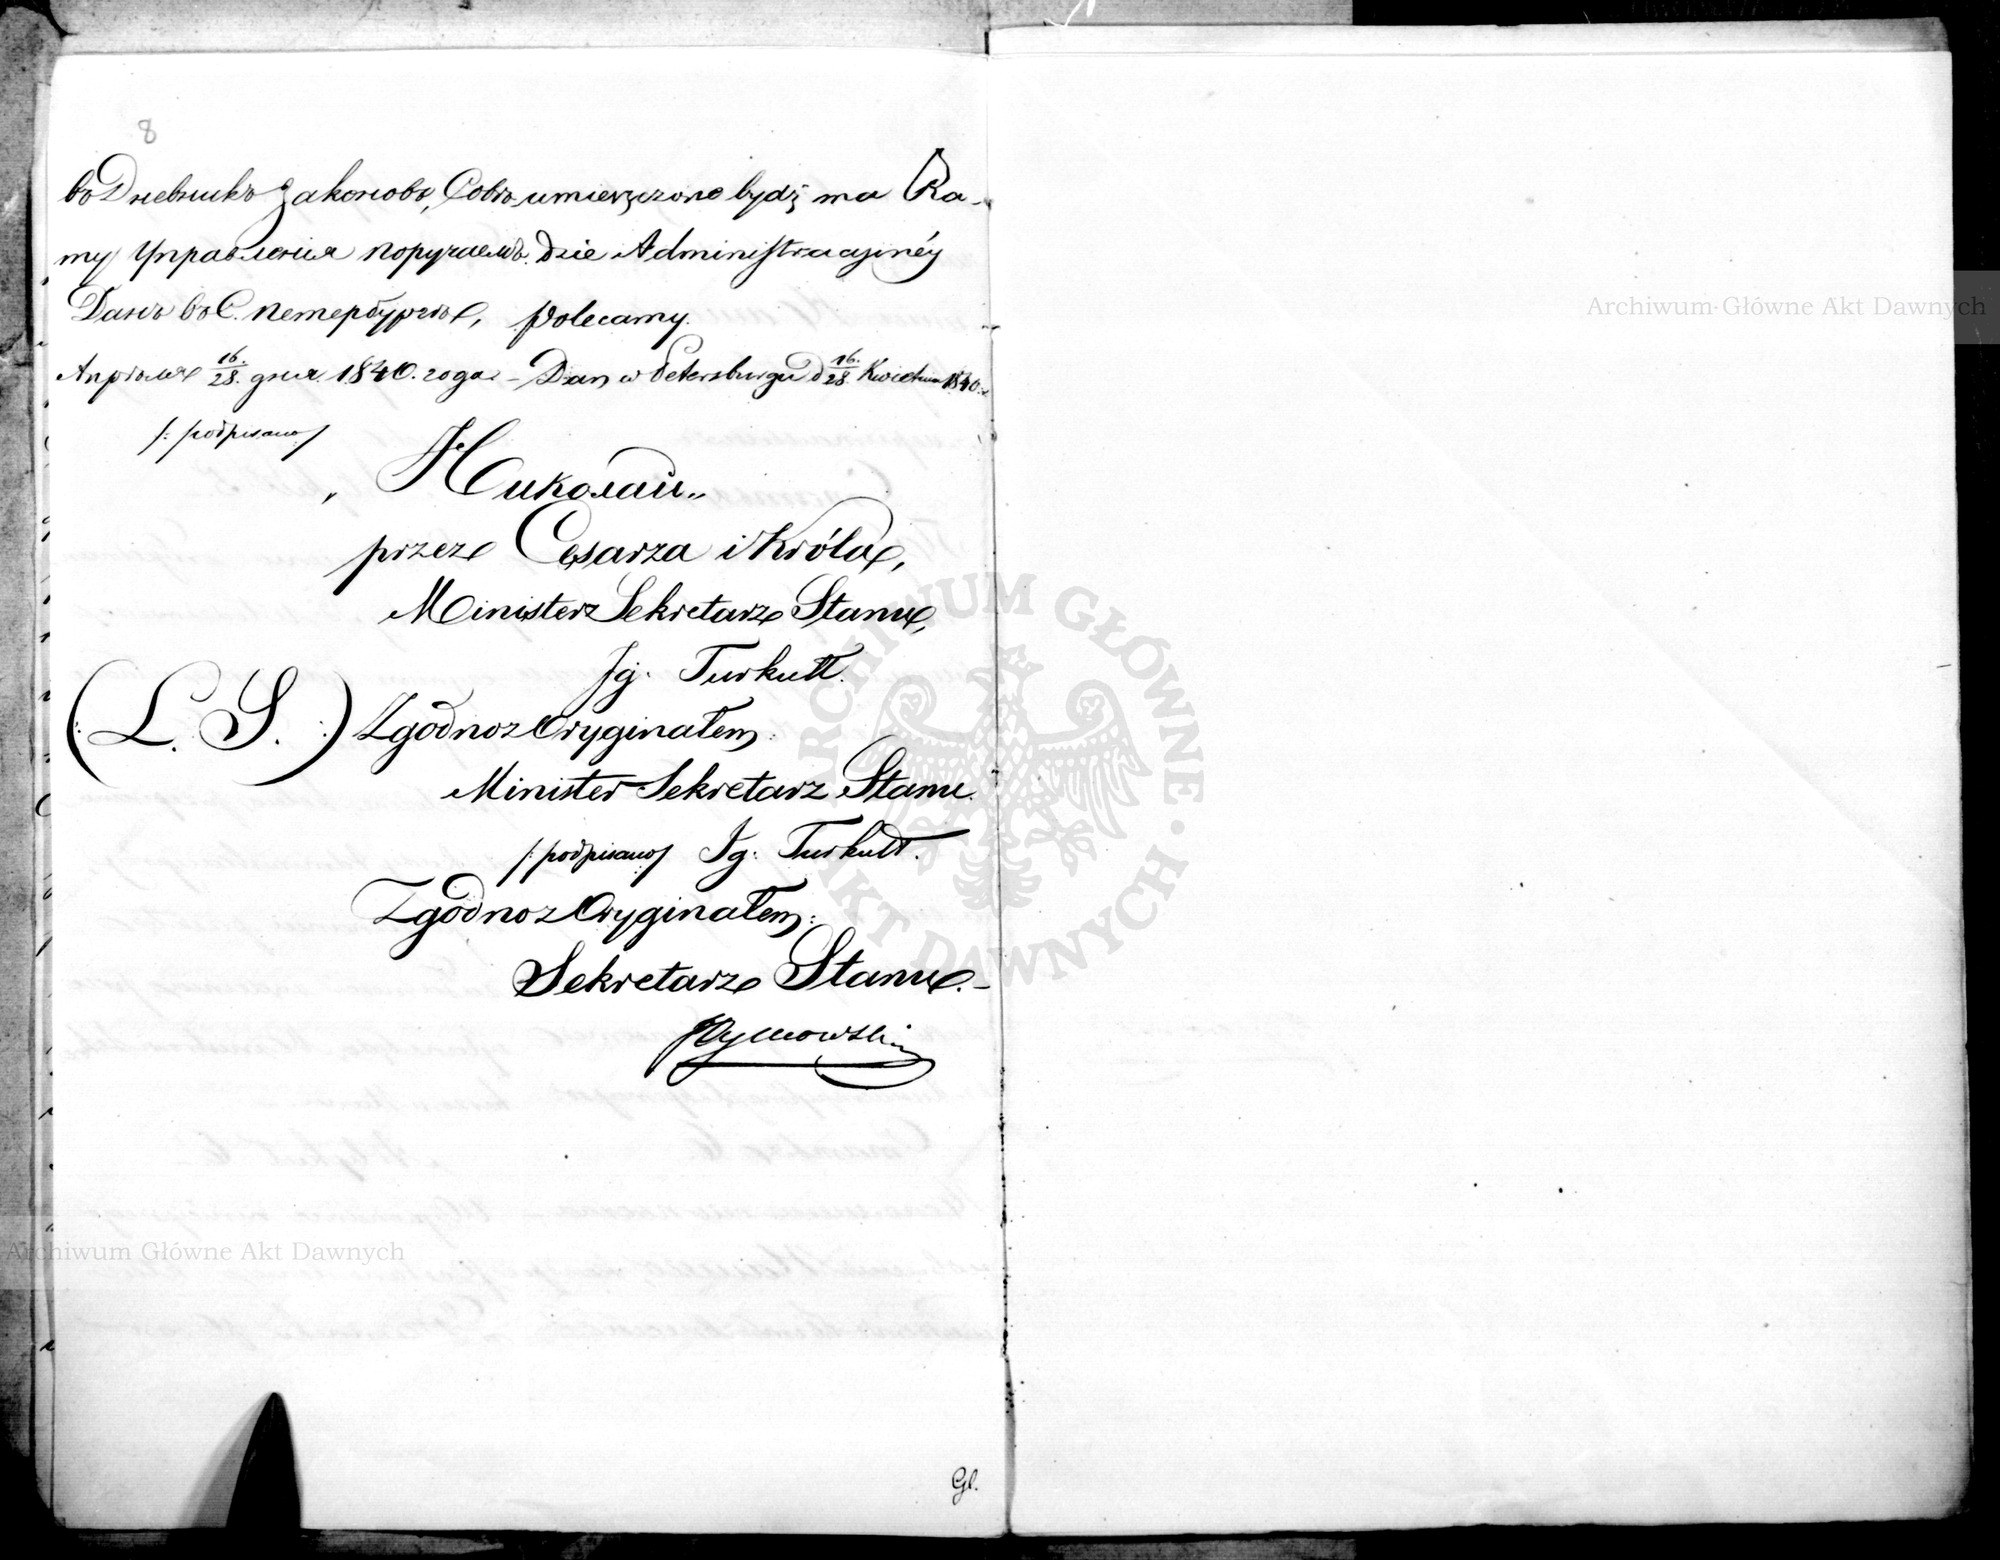 8
въ Дневникъ Законовъ, Совѣ- umieszczone bydź ma Ra-
ту Управленія поручаемъ. dzie Administracyinéy
Данъ въ С. Петербургѣ, polecamy.
Апрѣля 16/28 дня 1840. года - Dan w Petersburgu d 16/28 Kwietnia 1840. r.
/: podpisano /
„ Николай „
przez Cesarza i Króla,
Minister Sekretarz Stanu,
Ig. Turkułł.
(: L. S. :) Zgodno z Oryginałem:
Minister Sekretarz Stanu.
/: podpisano / Ig: Turkułł.
Zgodno z Oryginałem:
Sekretarz Stanu. -
Tymowski
Gl.
Archiwum Główne Akt Dawnych
Archiwum Główne Akt Dawnych
ARCHIWUM GŁÓWNE AKT DAWNYCH